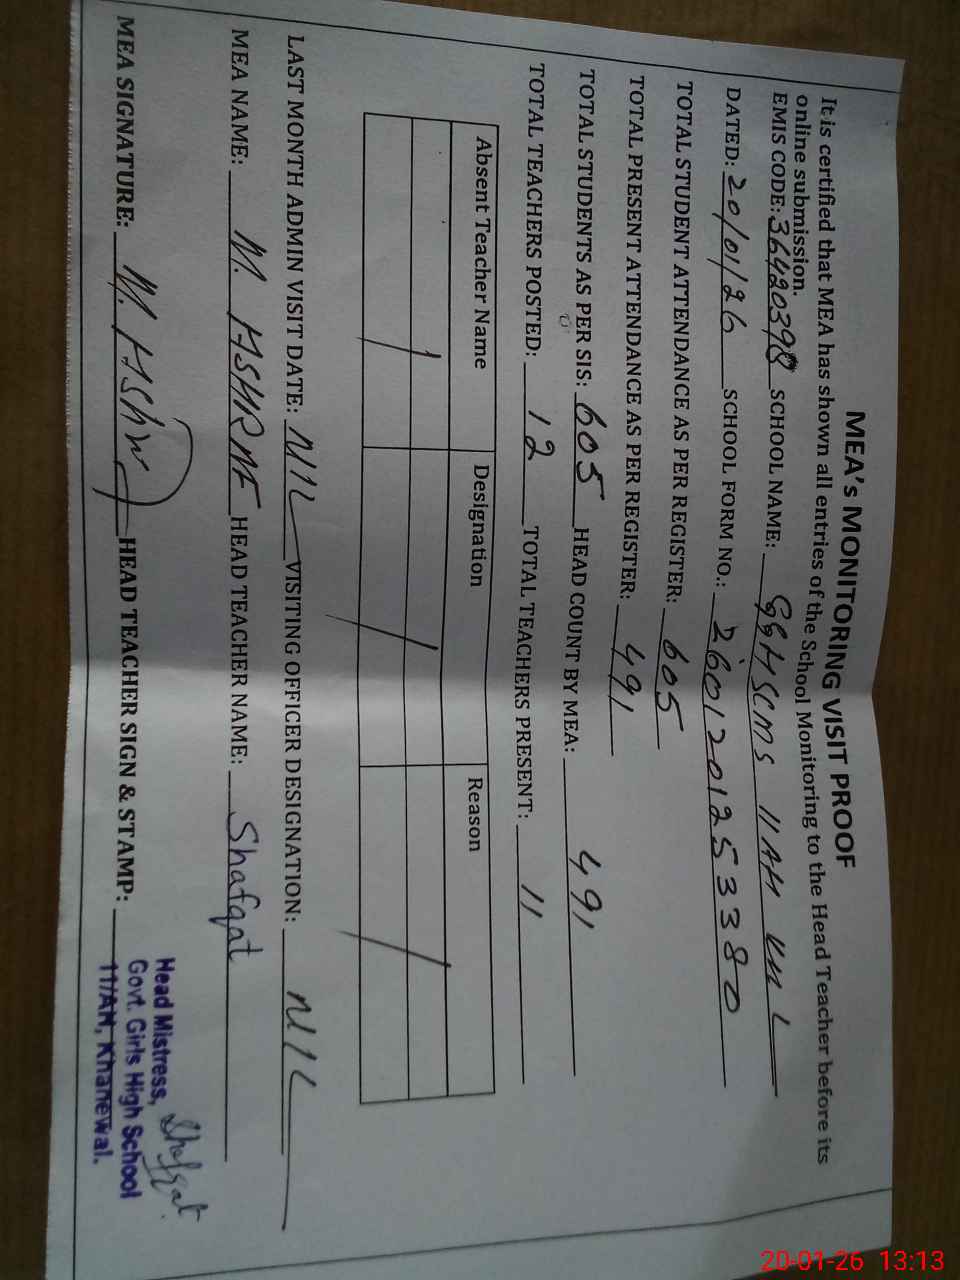 MEA's MONITORING VISIT PROOF
It is certified that MEA has shown all entries of the School Monitoring to the Head Teacher before its
online submission.
EMIS CODE: 36420398 SCHOOL NAME: GGHSCMS 11AH
DATED: 20/01/26 SCHOOL FORM NO.: 2601201253380
TOTAL STUDENT ATTENDANCE AS PER REGISTER: 605
TOTAL PRESENT ATTENDANCE AS PER REGISTER: 491
TOTAL STUDENTS AS PER SIS: 605 HEAD COUNT BY MEA: 491
TOTAL TEACHERS POSTED: 12 TOTAL TEACHERS PRESENT: 11
Absent Teacher Name Designation Reason
/ / /
LAST MONTH ADMIN VISIT DATE: NIL VISITING OFFICER DESIGNATION: NIL
MEA NAME: M. ASHRAF HEAD TEACHER NAME: Shafqat
MEA SIGNATURE: M. Ashraf HEAD TEACHER SIGN & STAMP: Shafqat
Head Mistress,
Govt. Girls High School
11/AH, Khanewal.
20-01-26 13:13